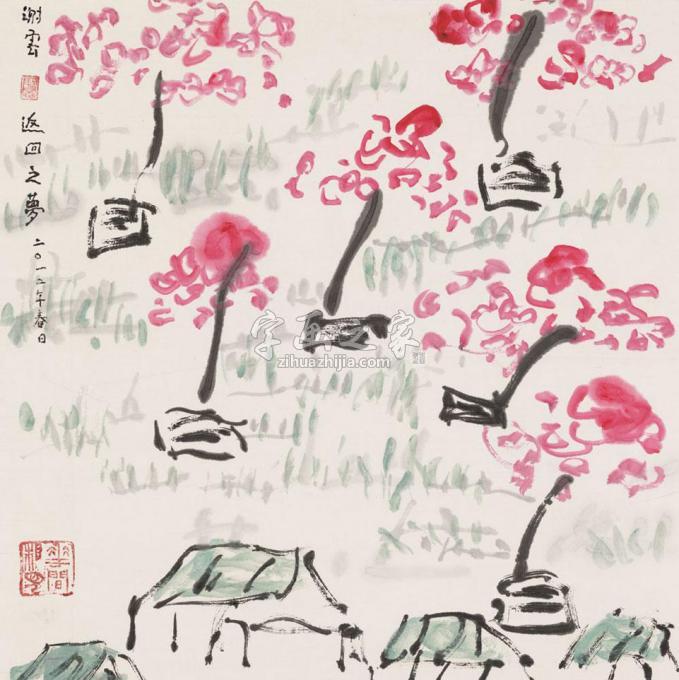 谢云
返回之梦
二〇一二年春日
字画之家
zihuazhijia.com